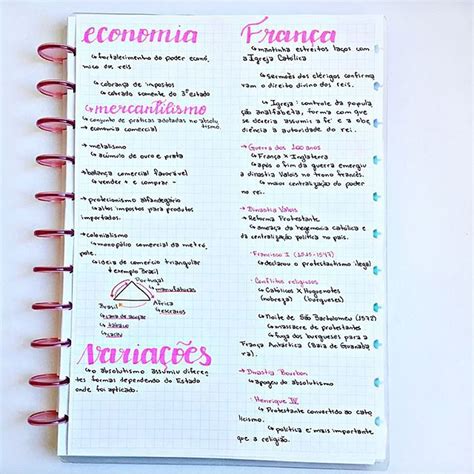 economia
↳ fortalecimento do poder econô
mico dos reis
↳ cobrança de impostos
↳ cobrado somente do 3º estado
mercantilismo
↳ conjunto de práticas adotadas no absolu
tismo.
↳ economia comercial
→ metalismo
↳ acúmulo de ouro e prata
→ balança comercial favorável
↳ vender + e comprar -
→ protecionismo alfandegário
↳ altos impostos para produtos
importados.
→ colonialismo
↳ monopólio comercial da metró
pole.
↳ ideia de comércio triangular
↳ exemplo Brasil
Portugal
↳ manufaturas
Brasil
África
↳ cana de açúcar
↳ escravos
↳ tabaco
↳ cacau
Variações
↳ o absolutismo assumiu diferen
tes formas dependendo do Estado
onde foi aplicado.
França
↳ mantinha estreitos laços com
a Igreja Católica
↳ sermões dos clérigos confirma
vam o direito divino dos reis.
↳ Igreja: controle da popula
ção analfabeta, forma com que
se deveria assumir a fé e a obe
diência à autoridade do rei.
→ Guerra dos 100 anos
↳ França X Inglaterra
↳ após o fim da guerra emergiu
a dinastia Valois no trono francês.
↳ maior centralização do poder
no rei.
→ Dinastia Valois
↳ Reforma Protestante
↳ ameaça da hegemonia católica e da
centralização política no país.
· Francisco I (1515-1547)
↳ declarou o protestantismo ilegal
· Conflitos religiosos
↳ Católicos X Huguenotes
(nobreza) (burgueses)
↳ Noite de São Bartolomeu (1572)
↳ massacre de protestantes
↳ fuga dos burgueses para a
França Antártica (Baía de Guanaba
ra).
→ Dinastia Bourbon
↳ apogeu do absolutismo
· Henrique IV
↳ Protestante convertido ao cato
licismo.
↳ política é mais importante
que a religião.